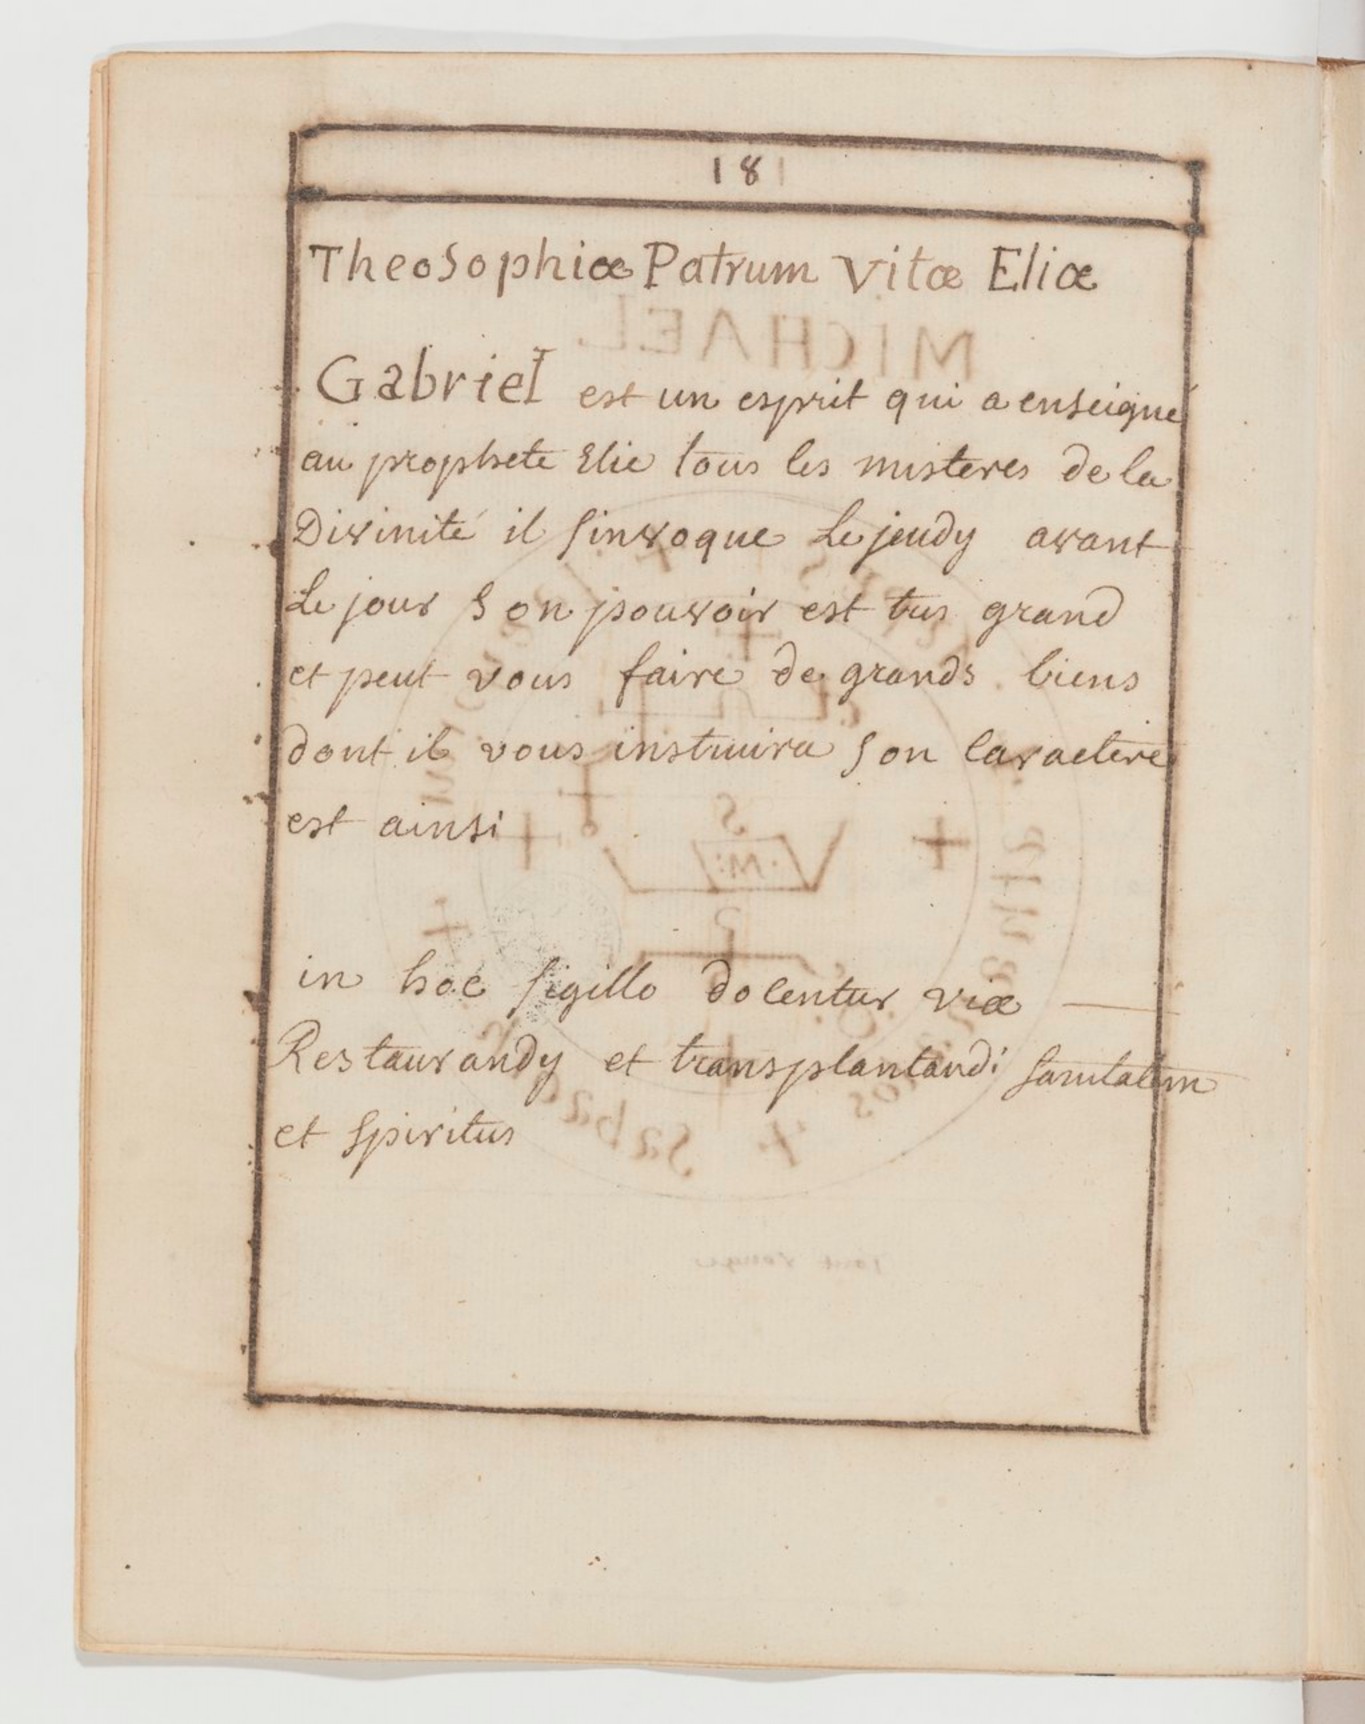 18
Theosophiæ Patrum vitæ Eliæ
Gabriel est un esprit qui a enseigné
au prophete Elie tous les misteres de la
Divinité il s'invoque Le jeudy avant
Le jour Son pouvoir est tres grand
et peut vous faire de grands biens
dont il vous instruira Son caractere
est ainsi
in hoc sigillo docentur viæ
Restaurandy et transplantandi sanitatem
et spiritus